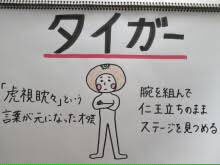 タイガー
「虎視眈々」という
言葉が元になった
腕を組んで
仁王立ちのまま
ステージを見つめる